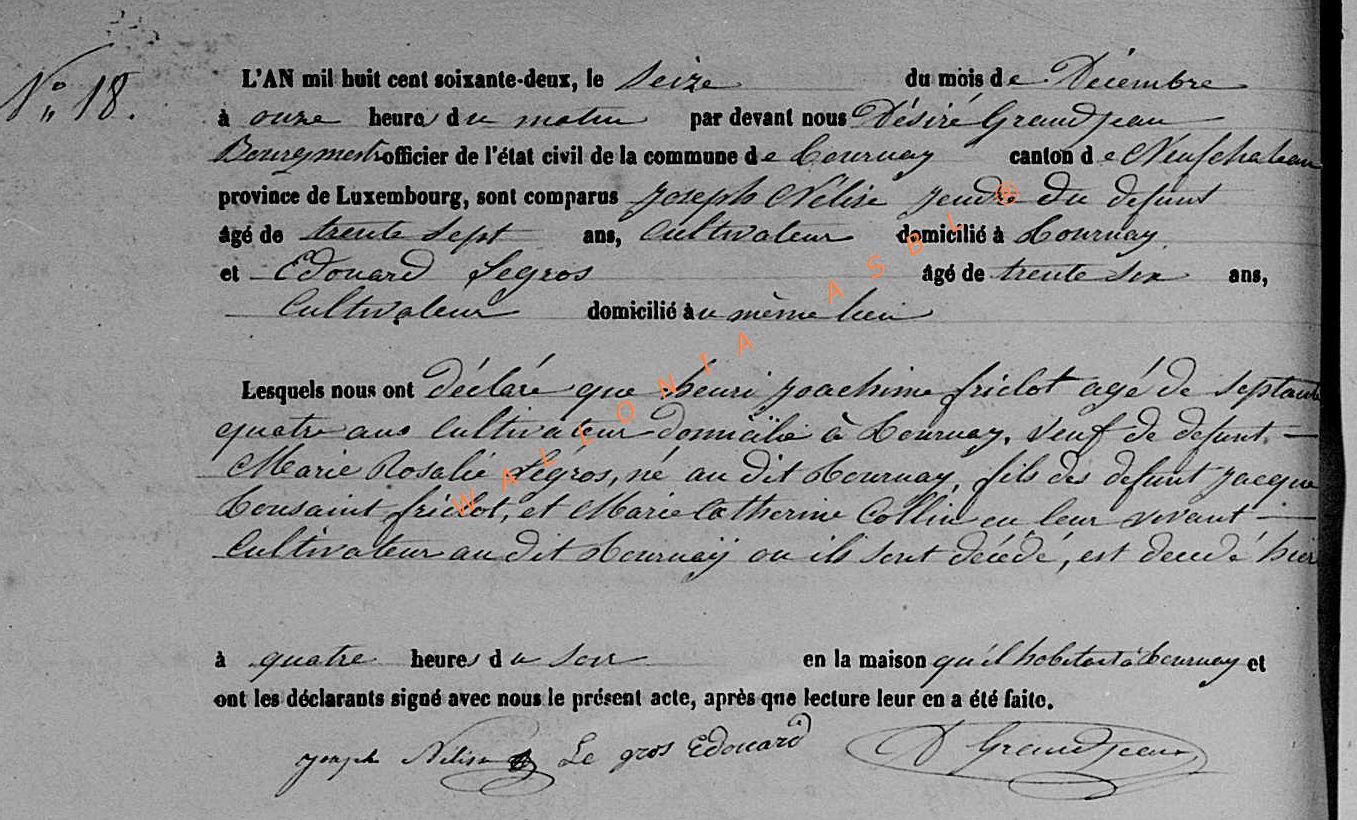 N° 18.
L'AN mil huit cent soixante-deux, le seize du mois de Décembre
à onze heure du matin par devant nous Désiré Grandjean
Bourgmestre officier de l'état civil de la commune de Tournay canton de Neufchateau
province de Luxembourg, sont comparus Joseph Nélise gendre du defunt
âgé de trente sept ans, Cultivateur domicilié à Tournay
et Edouard Legros âgé de trente six ans,
Cultivateur domicilié au même lieu
Lesquels nous ont déclaré que henri joachime friclot agé de septante
quatre ans Cultivateur domicilié à Tournay, veuf de defunt
Marie Rosalie Legros, né au dit Tournay, fils des defunt jacque
Tousaint friclot, et Marie Catherine Collin en leur vivant
Cultivateur au dit Tournay ou ils sont décédé, est decedé hier
à quatre heures du soir en la maison qu'il habitait à Tournay et
ont les déclarants signé avec nous le présent acte, après que lecture leur en a été faite.
joseph Nelise Le gros Edouard D Grandjean
WALLONIA ASBL ©